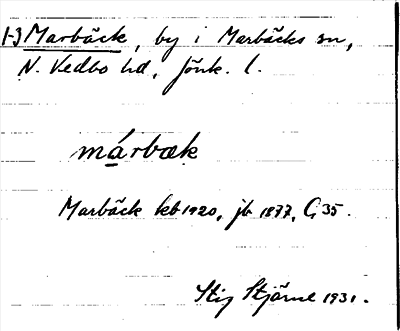 1-3 Marbäck, by i Marbäcks sn,
N. Vedbo hd, Jönk. l.
márbæk
Marbäck kb 1920, jb 1877, G 35.
Stig Stjärne 1931.